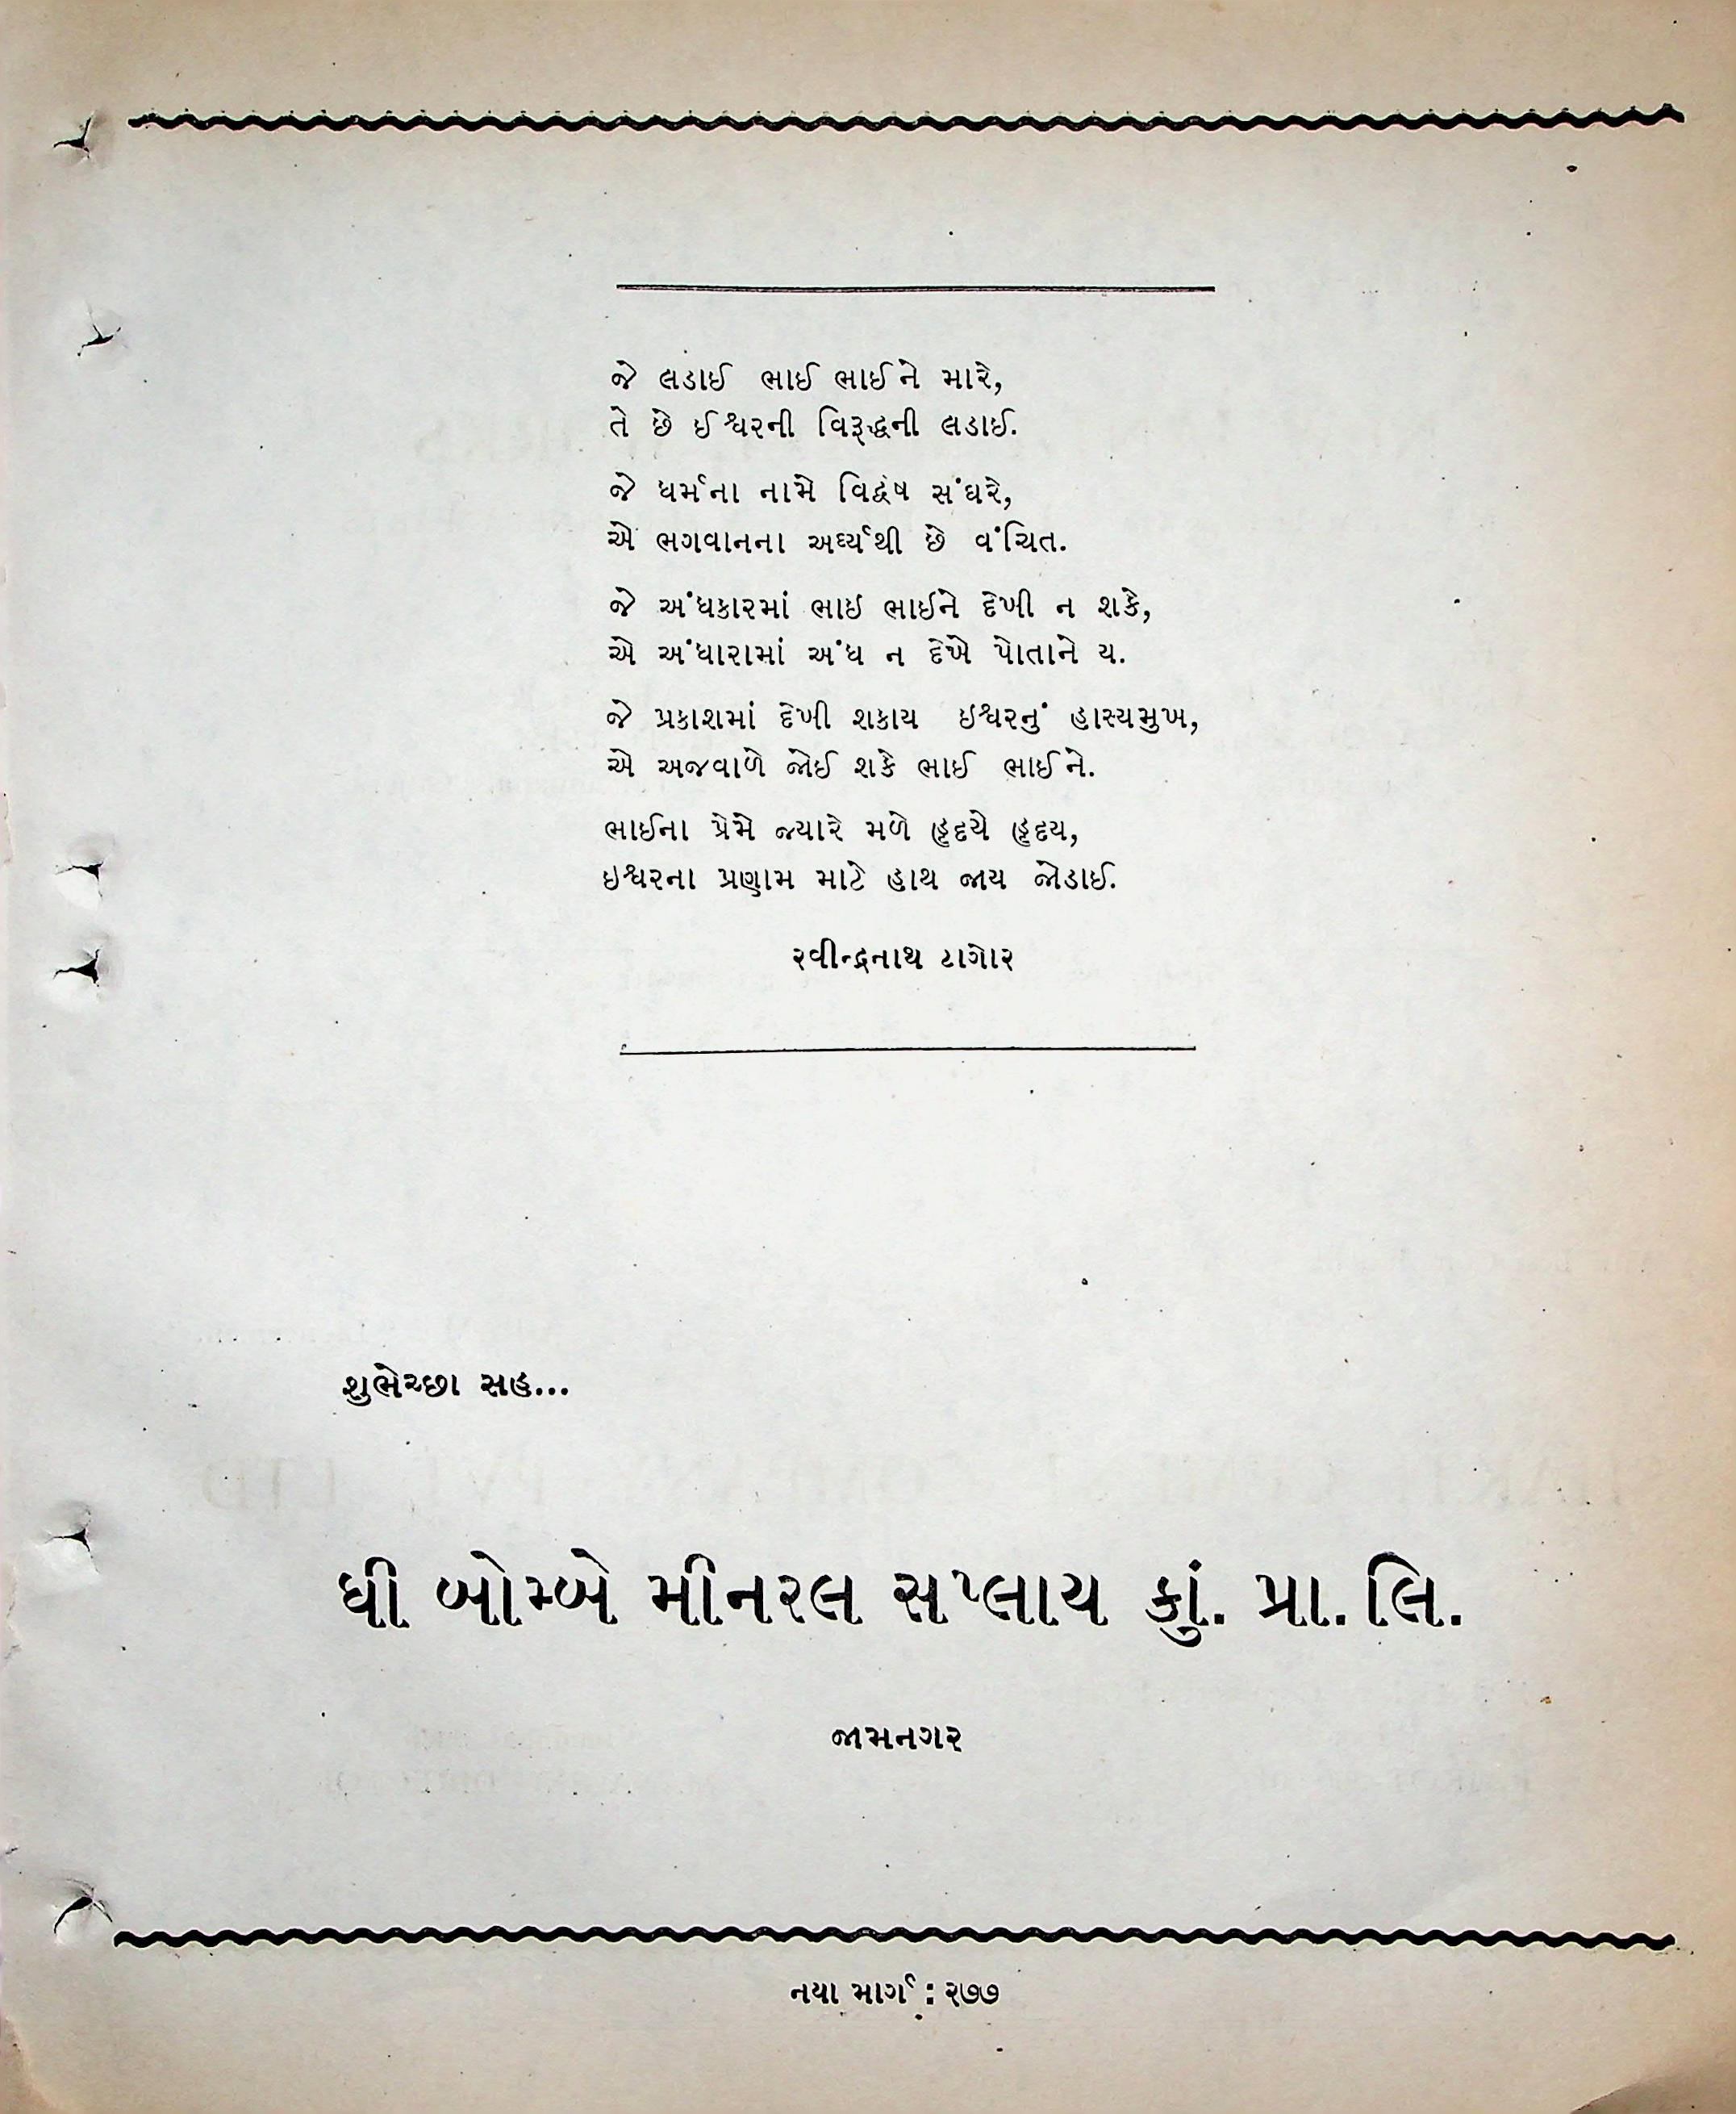 જે લડાઈ ભાઈ ભાઈને મારે,
તે છે ઈશ્વરની વિરૂદ્ધની લડાઈ.
જે ધર્મના નામે વિદ્વેષ સંઘરે,
એ ભગવાનના અર્ઘ્યથી છે વંચિત.
જે અંધકારમાં ભાઇ ભાઈને દેખી ન શકે,
એ અંધારામાં અંધ ન દેખે પોતાને ય.
જે પ્રકાશમાં દેખી શકાય ઇશ્વરનું હાસ્યમુખ,
એ અજવાળે જોઈ શકે ભાઈ ભાઈને.
ભાઈના પ્રેમે જ્યારે મળે હૃદયે હૃદય,
ઇશ્વરના પ્રણામ માટે હાથ જાય જોડાઈ.
રવીન્દ્રનાથ ટાગોર
શુભેચ્છા સહ...
ધી બોમ્બે મીનરલ સપ્લાય કું. પ્રા. લિ.
જામનગર
નયા માર્ગ : ૨૭૭